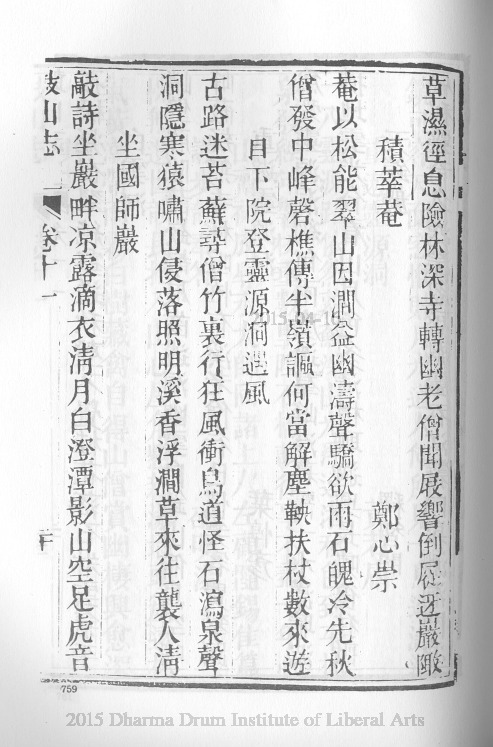 草濕徑息險林深寺轉幽老僧聞屐響倒屣迓巖陬
積萃菴
鄭心崇
菴以松能翠山因澗益幽濤聲驕欲雨石魄冷先秋
僧發中峰磬樵傳半嶺謳何當解塵鞅扶杖數來遊
自下院登靈源洞遇風
古路迷苔蘚尋僧竹裏行狂風衝鳥道怪石瀉泉聲
洞隱寒猿嘯山侵落照明溪香浮澗草來往襲人淸
坐國師巖
敲詩坐巖畔凉露滴衣淸月白澄潭影山空足虎音
鼓山志
卷十一
759
2015 Dharma Drum Institute of Liberal Arts